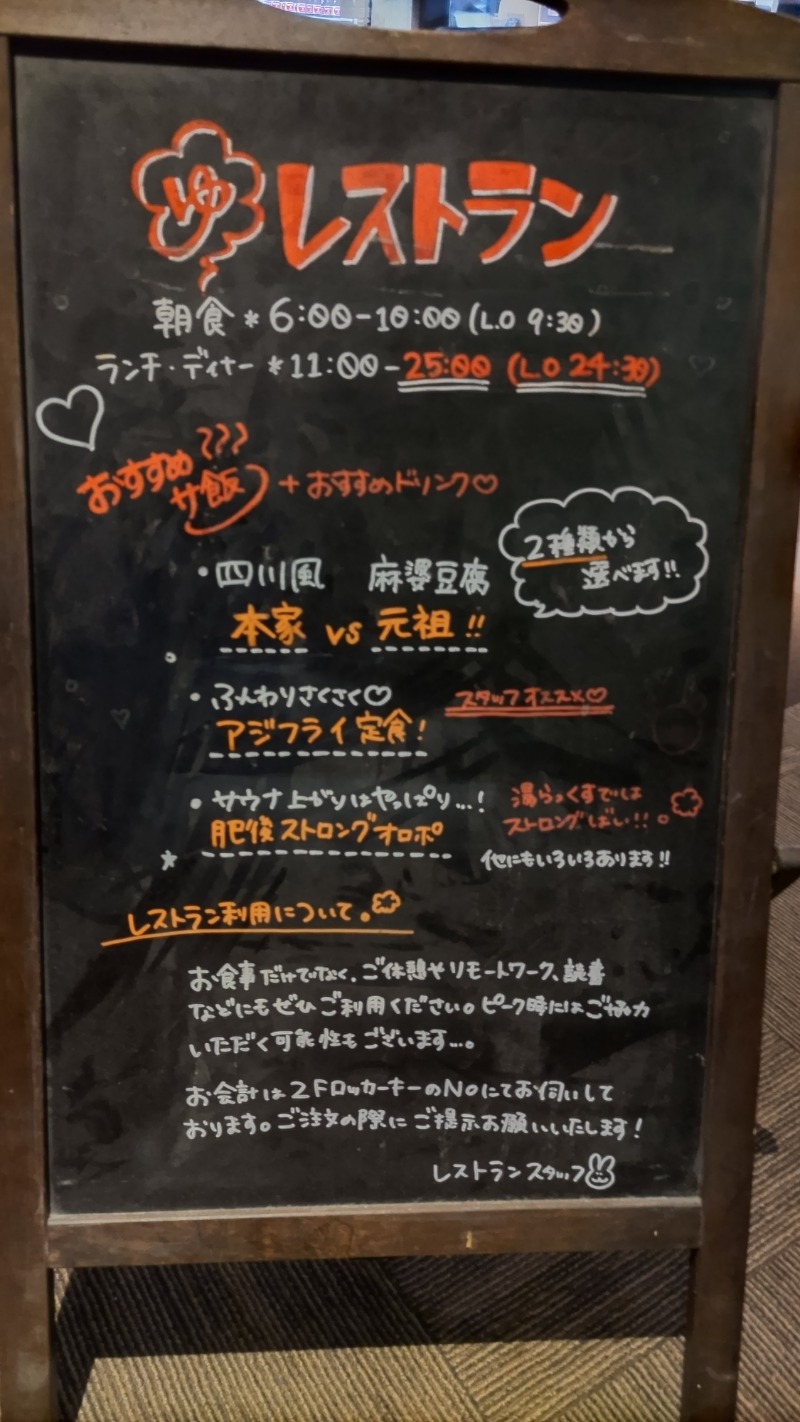 ゆ レストラン
朝食 * 6:00-10:00 (L.O 9:30)
ランチ・ディナー *11:00-25:00 (L.O 24:30)
おすすめ
サ飯 + おすすめドリンク♡
2種類から
選べます!!
・四川風 麻婆豆腐
本家 vs 元祖!!
・ふんわりさくさく♡ スタッフオススメ♡
アジフライ定食!
・サウナ上がりはやっぱり…! 湯らっくすでは
肥後ストロングオロポ ストロングばい!!。
他にもいろいろあります!!
レストラン利用について。
お食事だけでなく、ご休憩やリモートワーク、読書
などにもぜひご利用ください。ピーク時にはご協力
いただく可能性もございます…。
お会計は2FロッカーキーのNoにてお伺いして
おります。ご注文の際にご提示お願いいたします!
レストランスタッフ